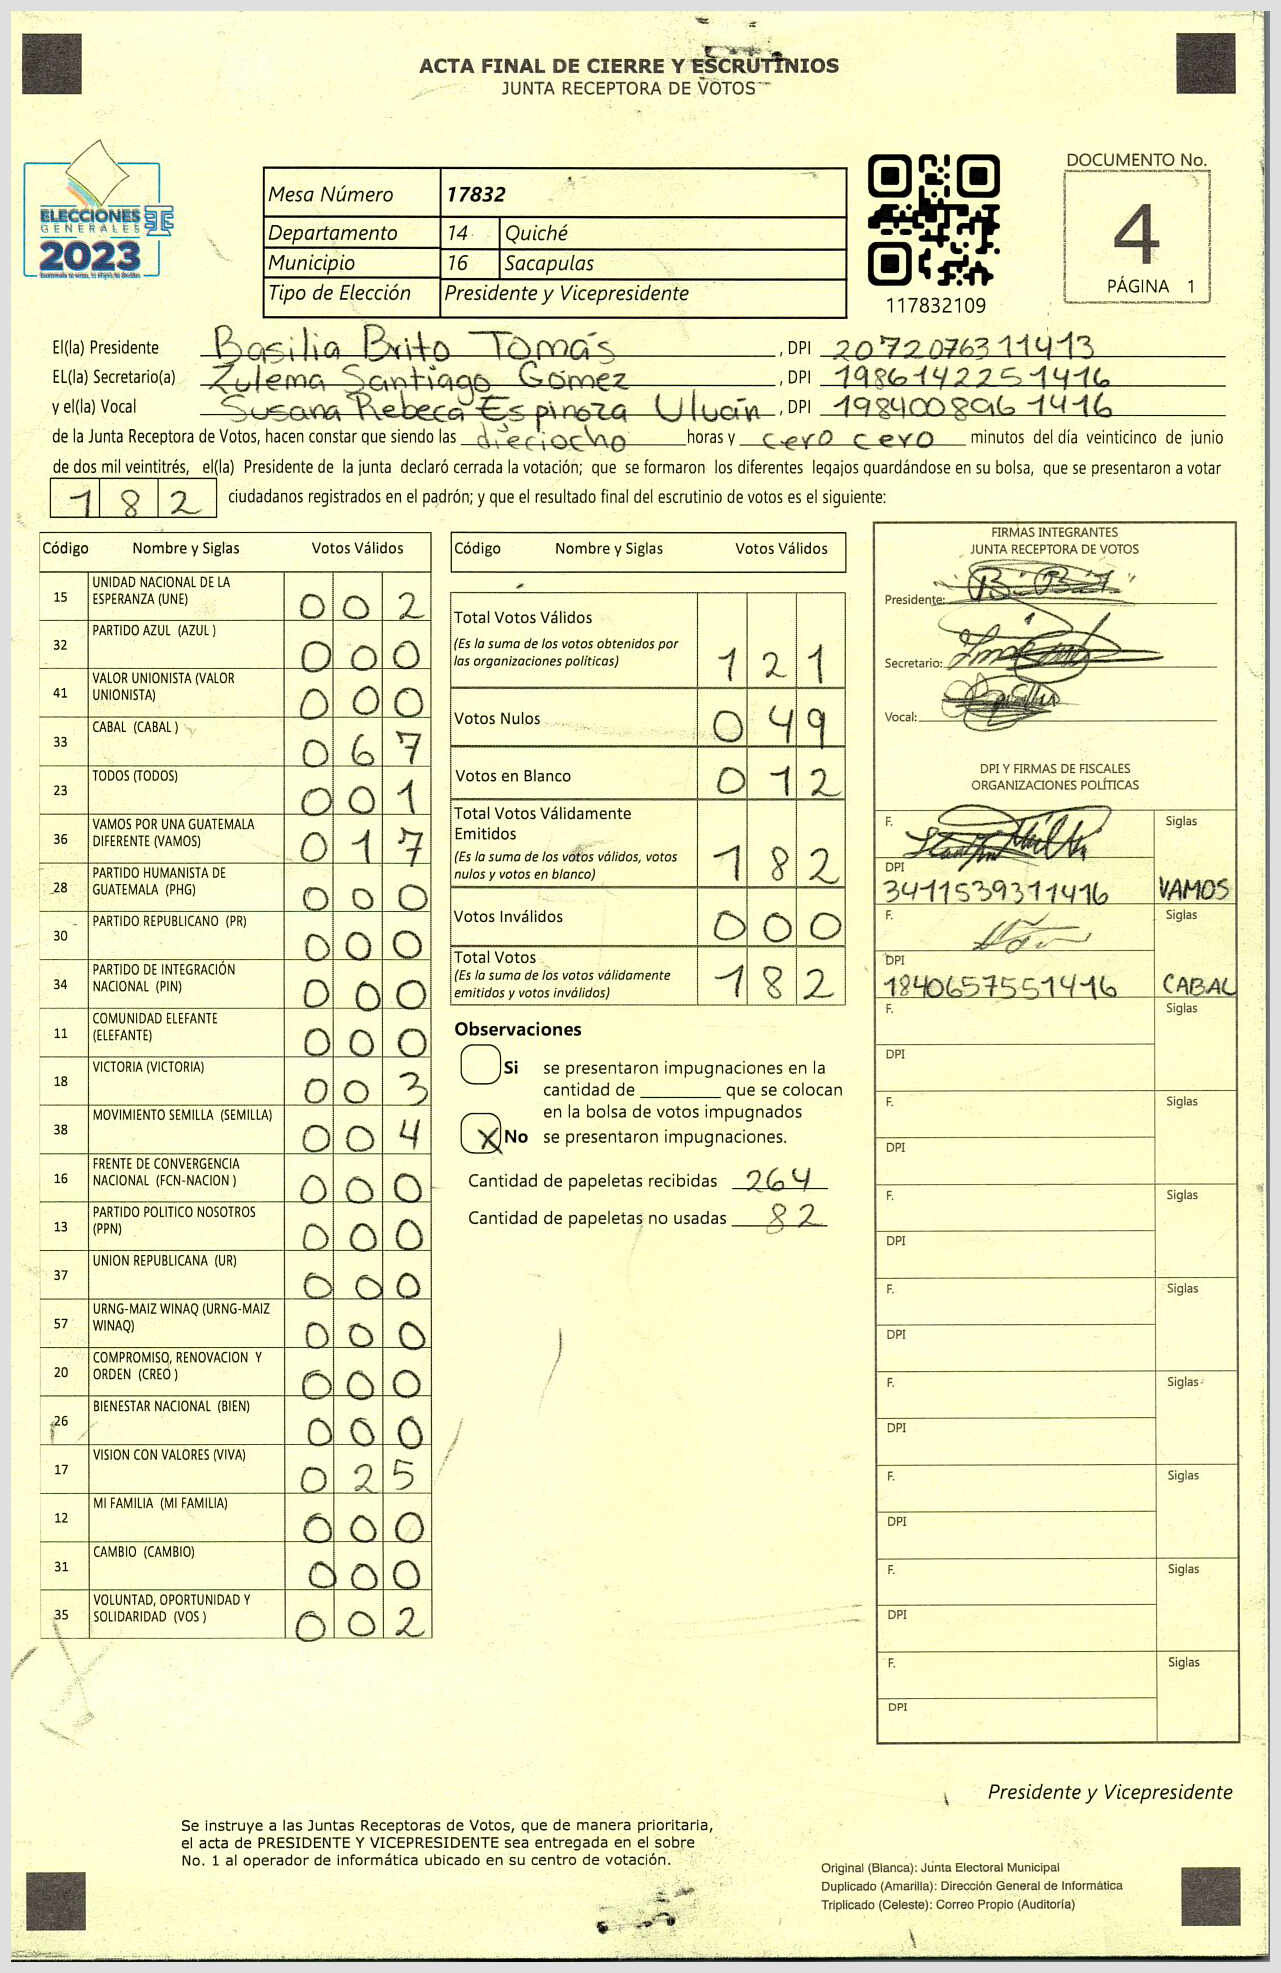 ACTA FINAL DE CIERRE Y ESCRUTINIOS
JUNTA RECEPTORA DE VOTOS
ELECCIONES
GENERALES
2023
Mesa Número 17832
Departamento 14 Quiché
Municipio 16 Sacapulas
Tipo de Elección Presidente y Vicepresidente
117832109
DOCUMENTO No.
4
PÁGINA 1
El(la) Presidente Basilia Brito Tomás , DPI 2072076311413
EL(la) Secretario(a) Zulema Santiago Gómez , DPI 1986142251416
y el(la) Vocal Susana Rebeca Espinoza Uluán , DPI 1984008961416
de la Junta Receptora de Votos, hacen constar que siendo las dieciocho horas y cero cero minutos del día veinticinco de junio
de dos mil veintitrés, el(la) Presidente de la junta declaró cerrada la votación; que se formaron los diferentes legajos guardándose en su bolsa, que se presentaron a votar
182 ciudadanos registrados en el padrón; y que el resultado final del escrutinio de votos es el siguiente:
Código Nombre y Siglas Votos Válidos
15 UNIDAD NACIONAL DE LA
ESPERANZA (UNE) 002
32 PARTIDO AZUL (AZUL ) 000
41 VALOR UNIONISTA (VALOR
UNIONISTA) 000
33 CABAL (CABAL ) 067
23 TODOS (TODOS) 001
36 VAMOS POR UNA GUATEMALA
DIFERENTE (VAMOS) 017
28 PARTIDO HUMANISTA DE
GUATEMALA (PHG) 000
30 PARTIDO REPUBLICANO (PR) 000
34 PARTIDO DE INTEGRACIÓN
NACIONAL (PIN) 000
11 COMUNIDAD ELEFANTE
(ELEFANTE) 000
18 VICTORIA (VICTORIA) 003
38 MOVIMIENTO SEMILLA (SEMILLA) 004
16 FRENTE DE CONVERGENCIA
NACIONAL (FCN-NACION ) 000
13 PARTIDO POLITICO NOSOTROS
(PPN) 000
37 UNION REPUBLICANA (UR) 000
57 URNG-MAIZ WINAQ (URNG-MAIZ
WINAQ) 000
20 COMPROMISO, RENOVACION Y
ORDEN (CREO ) 000
26 BIENESTAR NACIONAL (BIEN) 000
17 VISION CON VALORES (VIVA) 025
12 MI FAMILIA (MI FAMILIA) 000
31 CAMBIO (CAMBIO) 000
35 VOLUNTAD, OPORTUNIDAD Y
SOLIDARIDAD (VOS ) 002
Código Nombre y Siglas Votos Válidos
Total Votos Válidos
(Es la suma de los votos obtenidos por
las organizaciones políticas) 121
Votos Nulos 049
Votos en Blanco 012
Total Votos Válidamente
Emitidos
(Es la suma de los votos válidos, votos
nulos y votos en blanco) 182
Votos Inválidos 000
Total Votos
(Es la suma de los votos válidamente
emitidos y votos inválidos) 182
Observaciones
Si se presentaron impugnaciones en la
cantidad de ________ que se colocan
en la bolsa de votos impugnados
X No se presentaron impugnaciones.
Cantidad de papeletas recibidas 264
Cantidad de papeletas no usadas 82
FIRMAS INTEGRANTES
JUNTA RECEPTORA DE VOTOS
Presidente:
Secretario:
Vocal:
DPI Y FIRMAS DE FISCALES
ORGANIZACIONES POLÍTICAS
F. Siglas
DPI
3411539311416 VAMOS
F. Siglas
DPI
1840657551416 CABAL
F. Siglas
DPI
F. Siglas
DPI
F. Siglas
DPI
F. Siglas
DPI
F. Siglas
DPI
F. Siglas
DPI
F. Siglas
DPI
F. Siglas
DPI
Presidente y Vicepresidente
Se instruye a las Juntas Receptoras de Votos, que de manera prioritaria,
el acta de PRESIDENTE Y VICEPRESIDENTE sea entregada en el sobre
No. 1 al operador de informática ubicado en su centro de votación.
Original (Blanca): Junta Electoral Municipal
Duplicado (Amarilla): Dirección General de Informática
Triplicado (Celeste): Correo Propio (Auditoría)